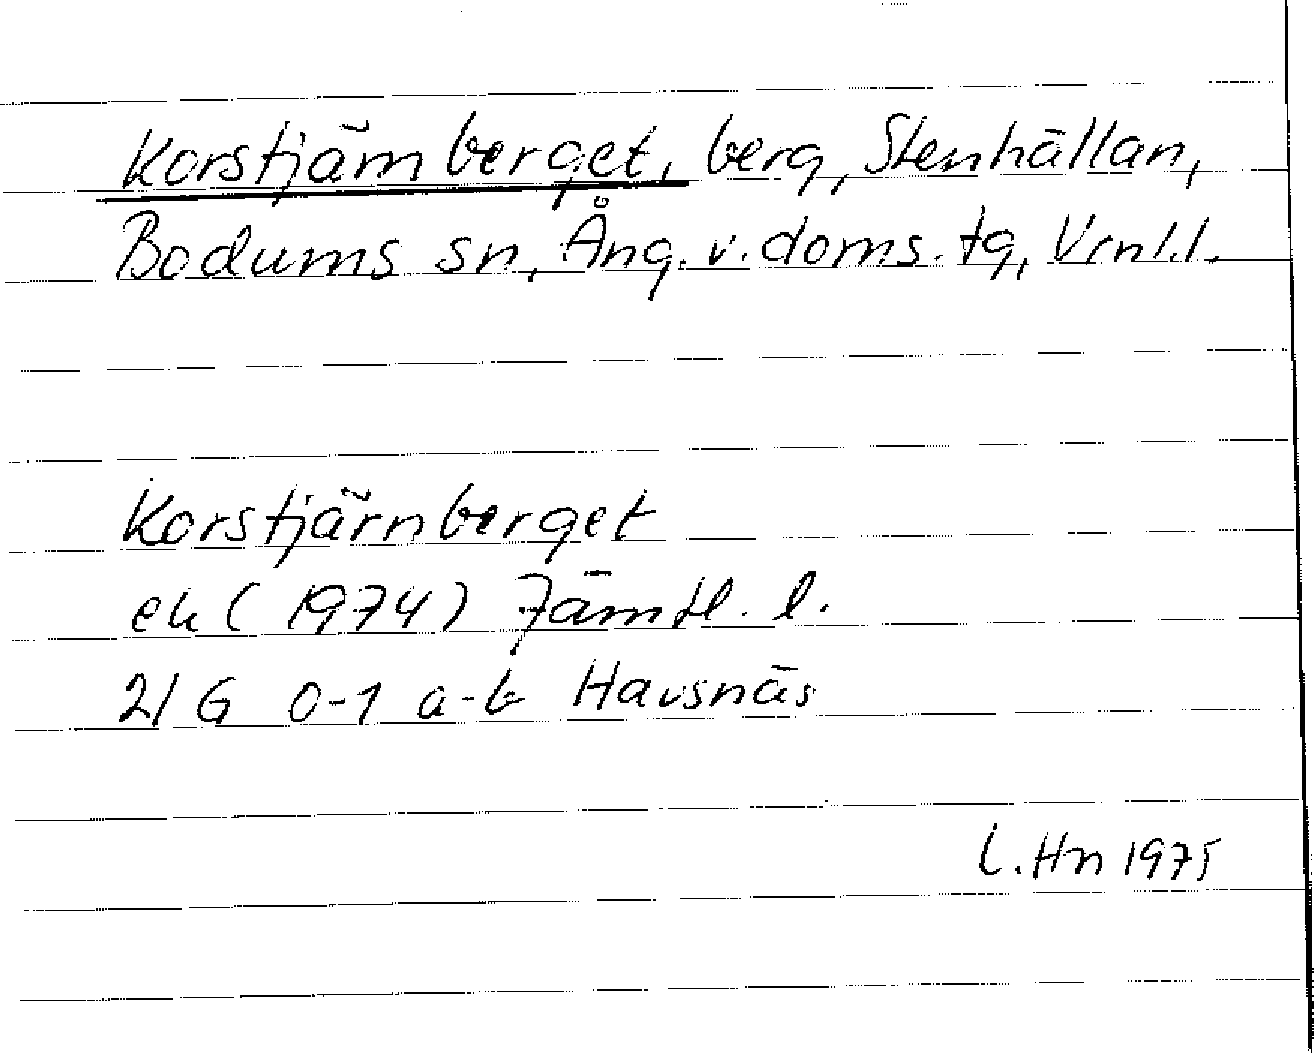 Korstjärnberget, berg, Stenhällan,
Bodums sn, Ång. v. doms. tg, Vrnl. l.
Korstjärnberget
ek (1974) Jämtl. l.
21 G 0-1 a-b Havsnäs
L. Hn 1975